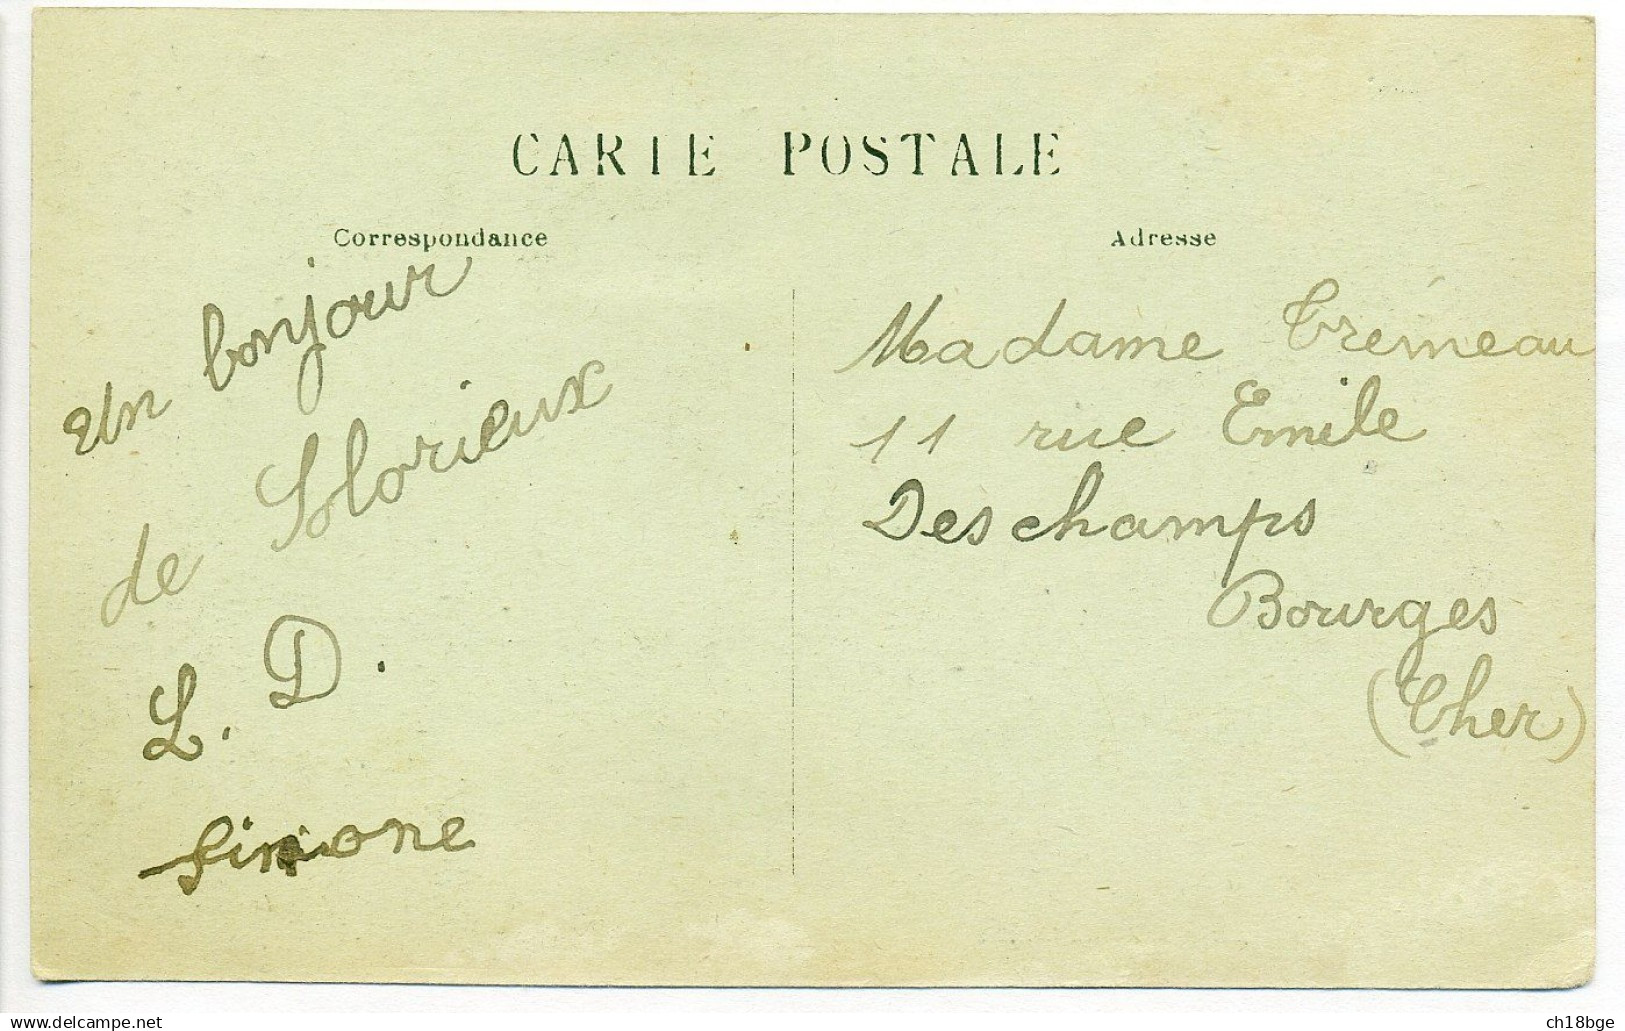 CARTE POSTALE
Correspondance
Adresse
Un bonjour
de Florieux
L. D.
Simone
Madame Trémeau
11 rue Emile
Deschamps
Bourges
(Cher)
www.delcampe.net
ch18bge